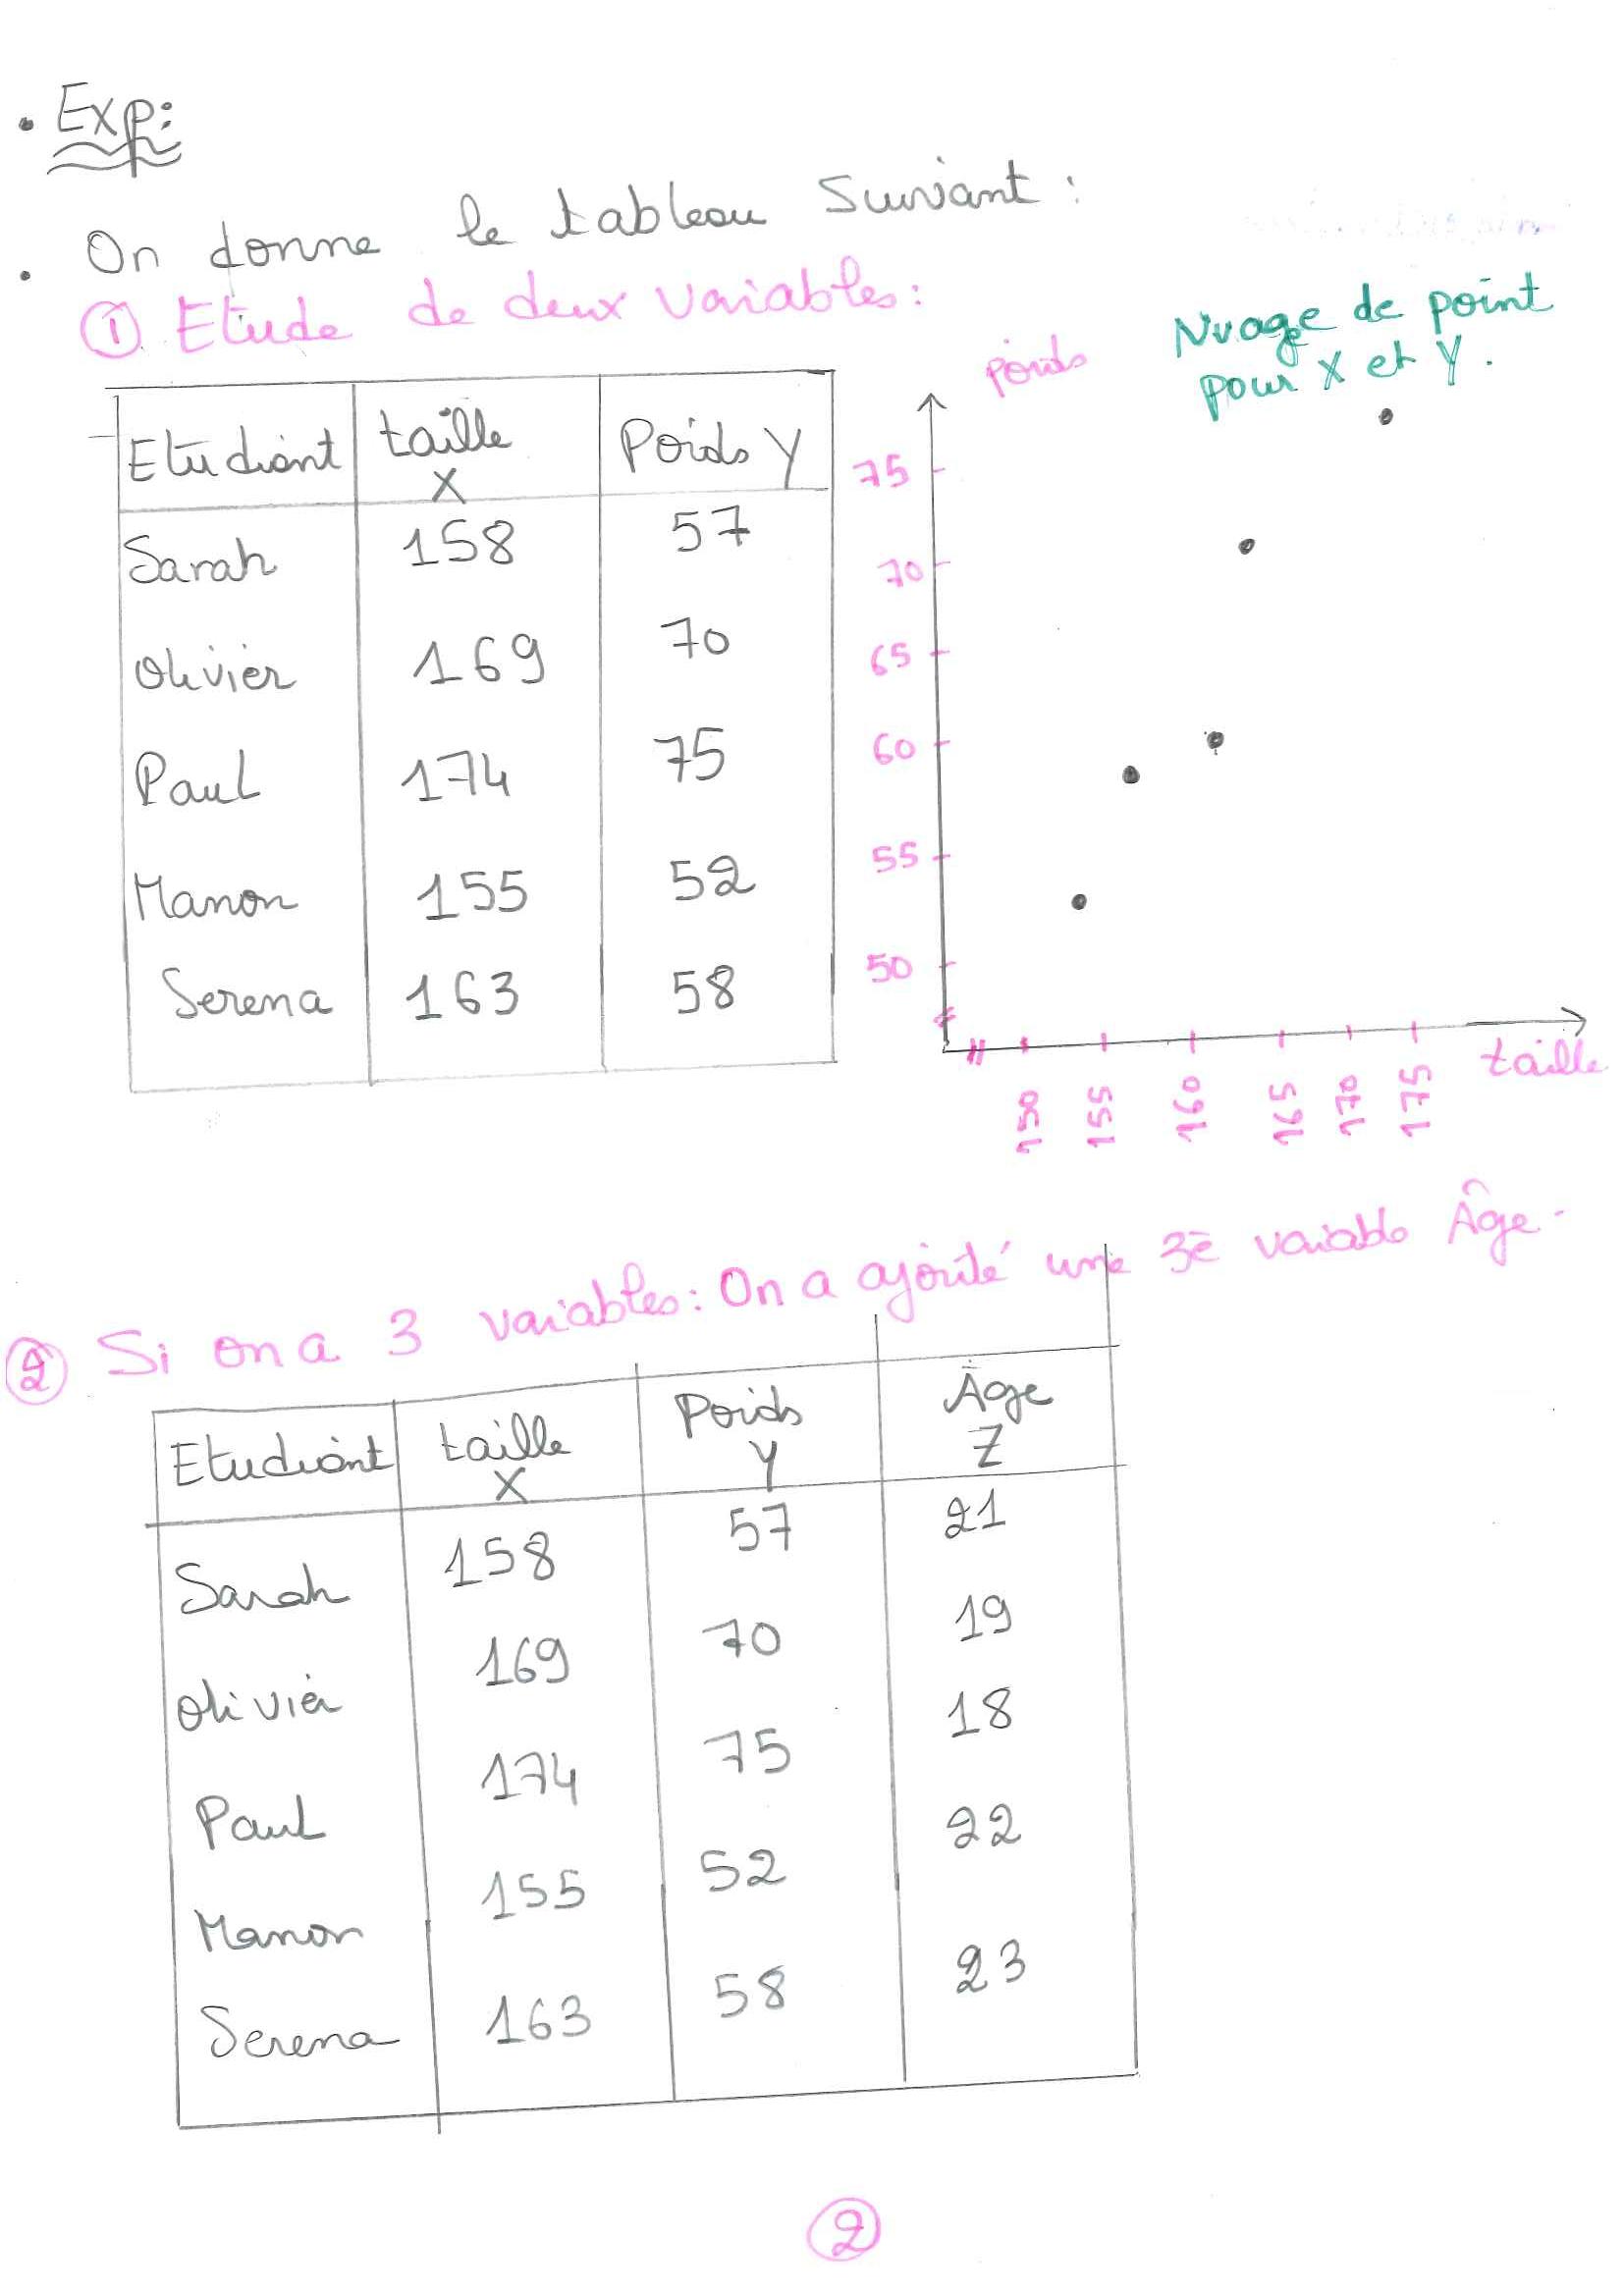 . Exp:
. On donne le tableau Suivant :
① Etude de deux variables :
Etudiant taille X Poids Y
Sarah 158 57
Olivier 169 70
Paul 174 75
Manon 155 52
Serena 163 58
Nuage de point
pour X et Y.
poids
75
70
65
60
55
50
150 155 160 165 170 175
taille
② Si on a 3 variables : On a ajouté une 3è variable Âge.
Etudiant taille X Poids Y Âge Z
Sarah 158 57 21
Olivier 169 70 19
Paul 174 75 18
Manon 155 52 22
Serena 163 58 23
②